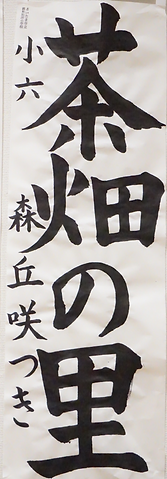 茶畑の里
小六 森丘咲つき